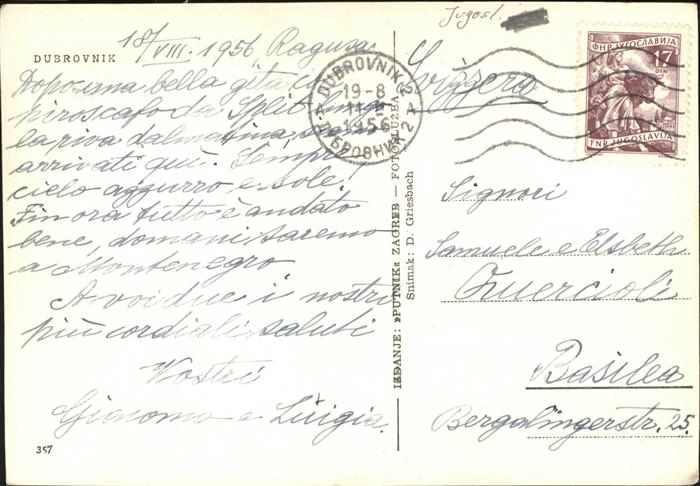 Jugosl.
DUBROVNIK
18/VIII. 1956 Ragusa
Dopo una bella gita col
piroscafo da Split lungo
la riva dalmatina siamo
arrivati qui. Sempre
cielo azzurro e sole!
Finora tutto è andato
bene, domani saremo
a Montenegro
A voi due i nostri
più cordiali saluti
Vostri
Giacomo e Luigia.
357
IZDANJE: »PUTNIK« ZAGREB — FOTOSLUŽBA
Snimak: D. Griesbach
DUBROVNIK 2
19-8
1956
ДУБРОВНИК 2
Svizzera
ФНР ЈУГОСЛАВИЈА
17
DIN
FNR JUGOSLAVIJA
Signori
Samuele e Elsbeth
Quercioli
Basilea
Bergalingerstr. 25.